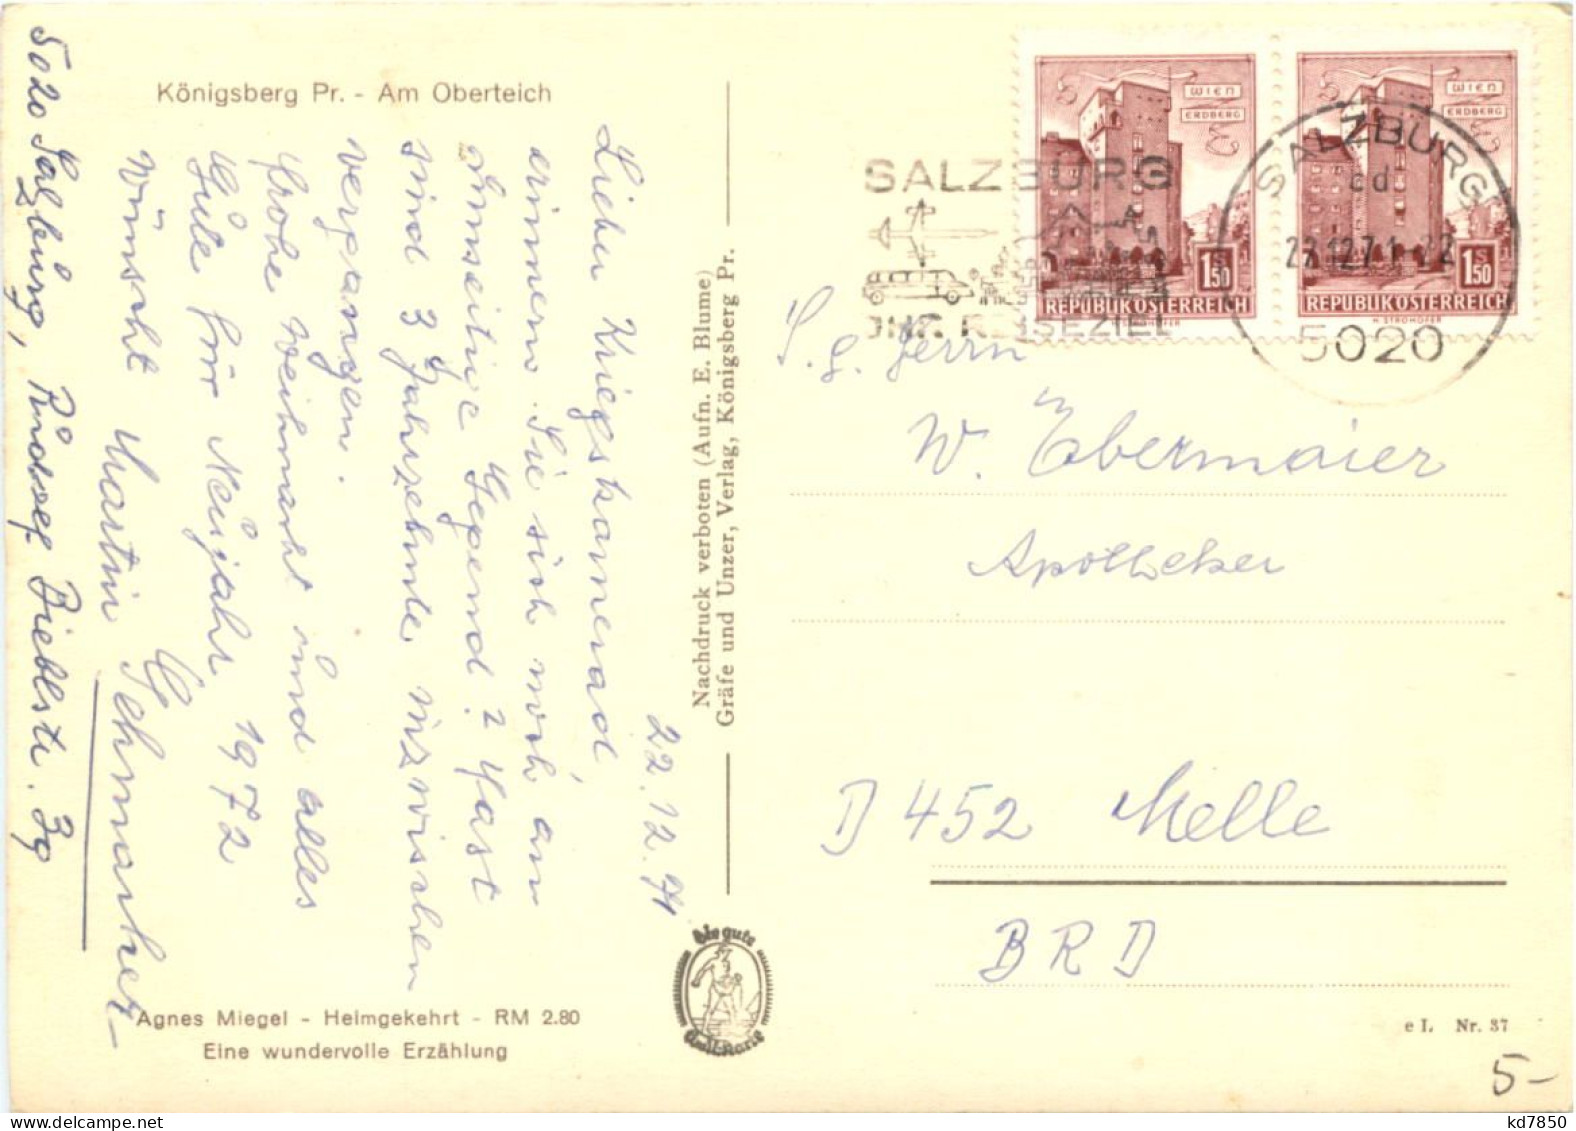 Königsberg Pr. - Am Oberteich
22.12.71
Lieber Kriegskamerad,
erinnern Sie sich noch an
umseitige Gegend? Fast
sind 3 Jahrzehnte inzwischen
vergangen.
Frohe Weihnacht und alles
Gute für Neujahr 1972
wünscht Martin
5020 Salzburg,
Agnes Miegel - Heimgekehrt - RM 2.80
Eine wundervolle Erzählung
Nachdruck verboten (Aufn. E. Blume)
Gräfe und Unzer, Verlag, Königsberg Pr.
die gute
WIEN
ERDBERG
1.50
REPUBLIK ÖSTERREICH
WIEN
ERDBERG
S
1.50
REPUBLIK ÖSTERREICH
H. STROHOFER
SALZBURG
IHR REISEZIEL
SALZBURG
5020
S. g. Herrn
W. Ebermaier
Apotheker
D 452 Melle
BRD
e L Nr. 37
5-
kd7850